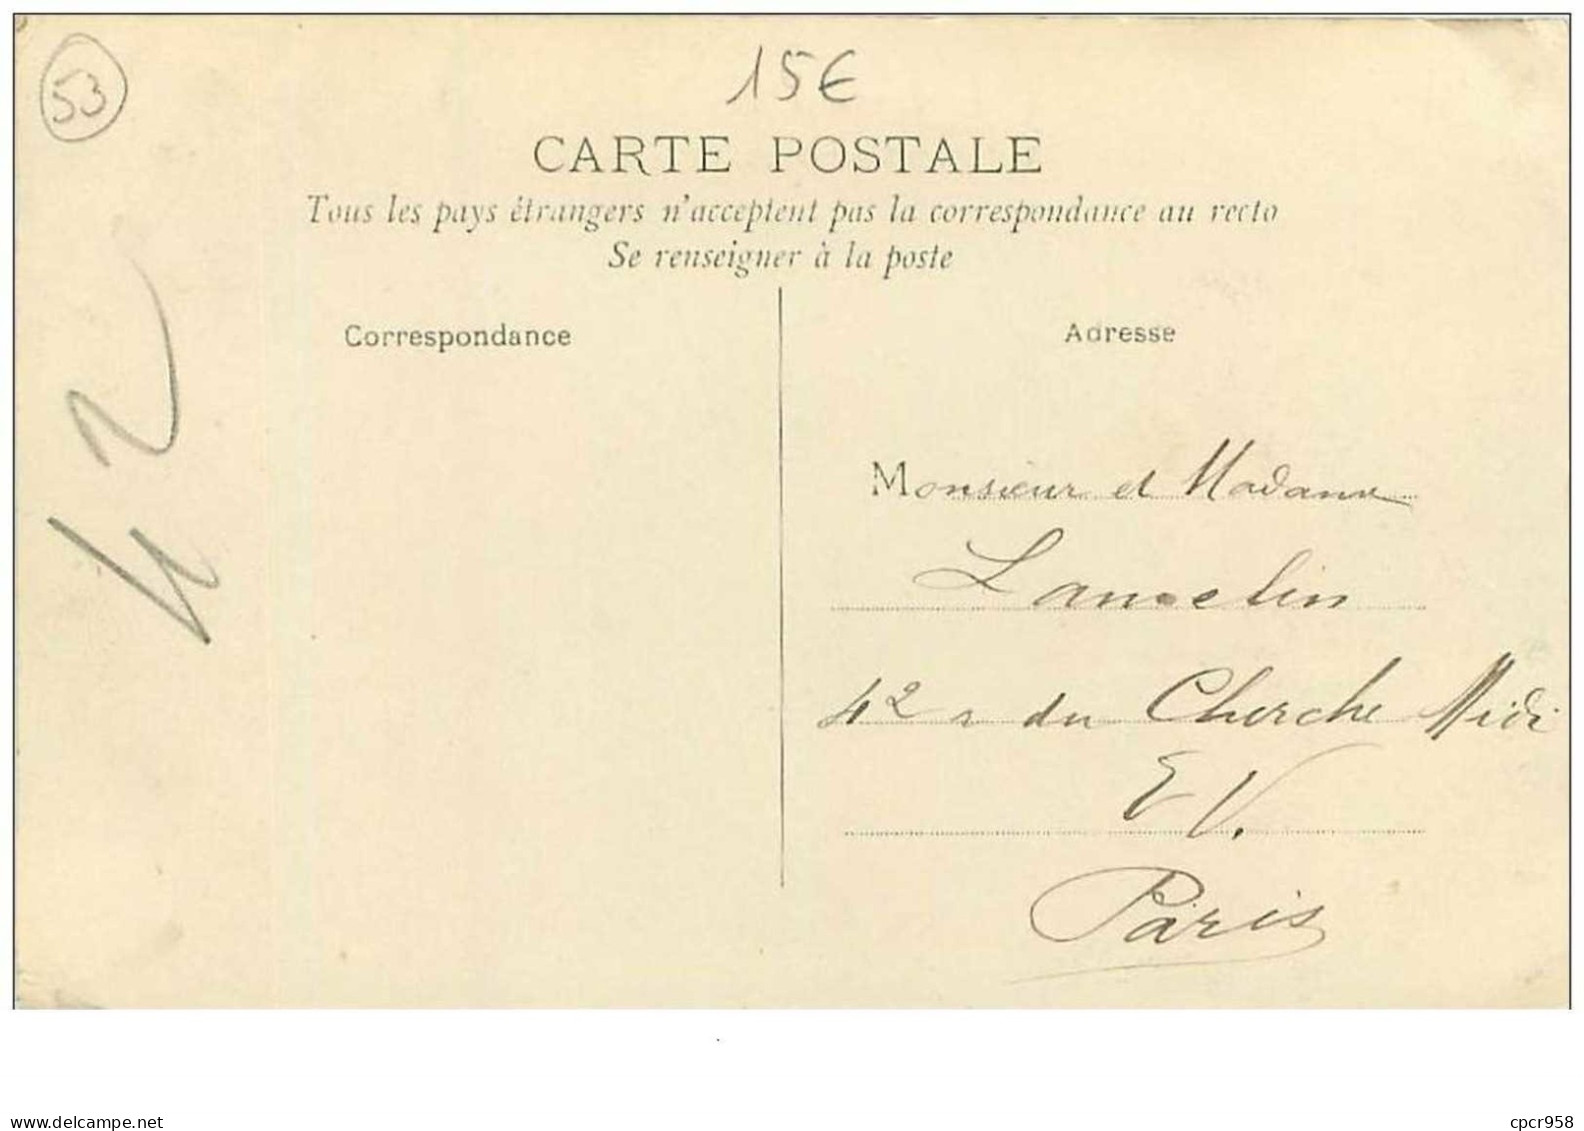 53
15€
CARTE POSTALE
Tous les pays étrangers n'acceptent pas la correspondance au recto
Se renseigner à la poste
Correspondance
Adresse
42
Monsieur et Madame
42 r du Cherche Midi
E V.
Paris
www.delcampe.net
cpcr958